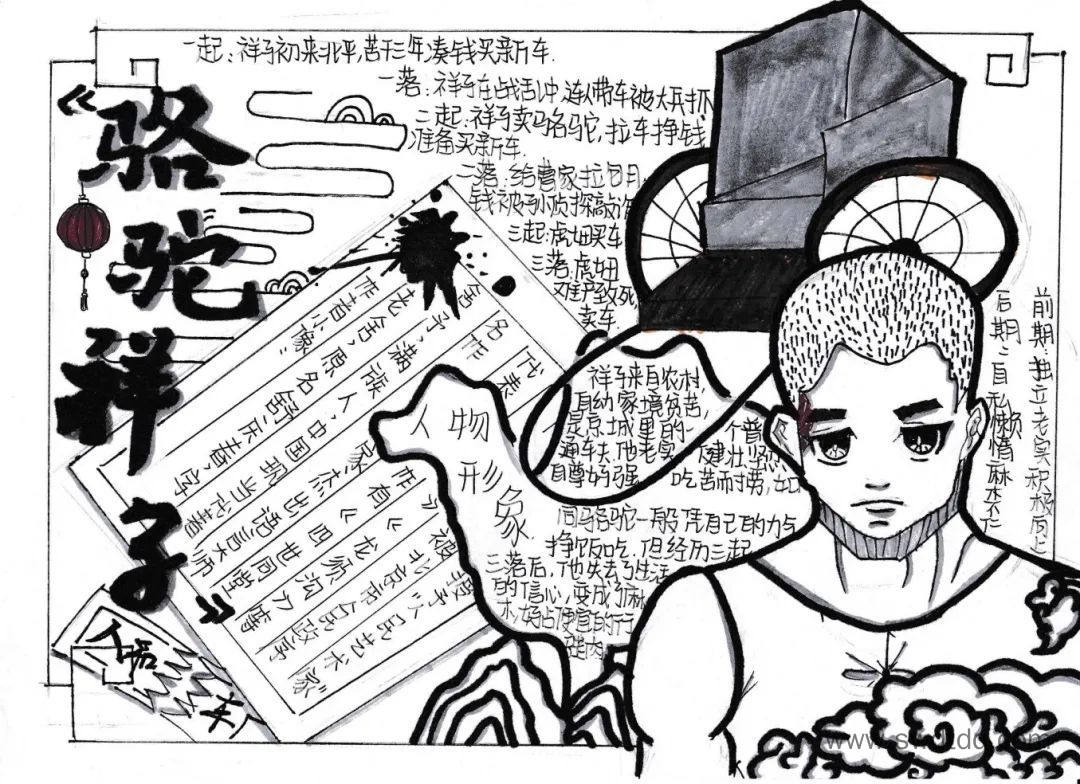 《骆驼祥子》
一起:祥子初来北平,苦干三年凑钱买新车.
一落:祥子在战乱中,连人带车被大兵抓
二起:祥子卖骆驼,拉车挣钱
准备买新车.
二落:给曹家拉包月,
钱被孙侦探敲诈
三起:虎妞买车
三落:虎妞
难产致死,
卖车.
老舍,原名舒庆春,字
舍予,满族人,中国现当代著
名作家,杰出语言大师
代表作有《四世同堂》
《龙须沟》
"人民艺术家"
人物
形象
祥子来自农村,
自幼家境贫苦,
是京城里的一个普
通车夫,他老实健壮坚忍
自尊好强吃苦而耐劳,如
同骆驼一般凭自己的力气
挣饭吃.但经历三起
三落后,他失去了生活
的信心,变成了麻
木,好占便宜的行
尸走肉
前期:独立老实积极向上
后期:自私懒惰麻木不仁